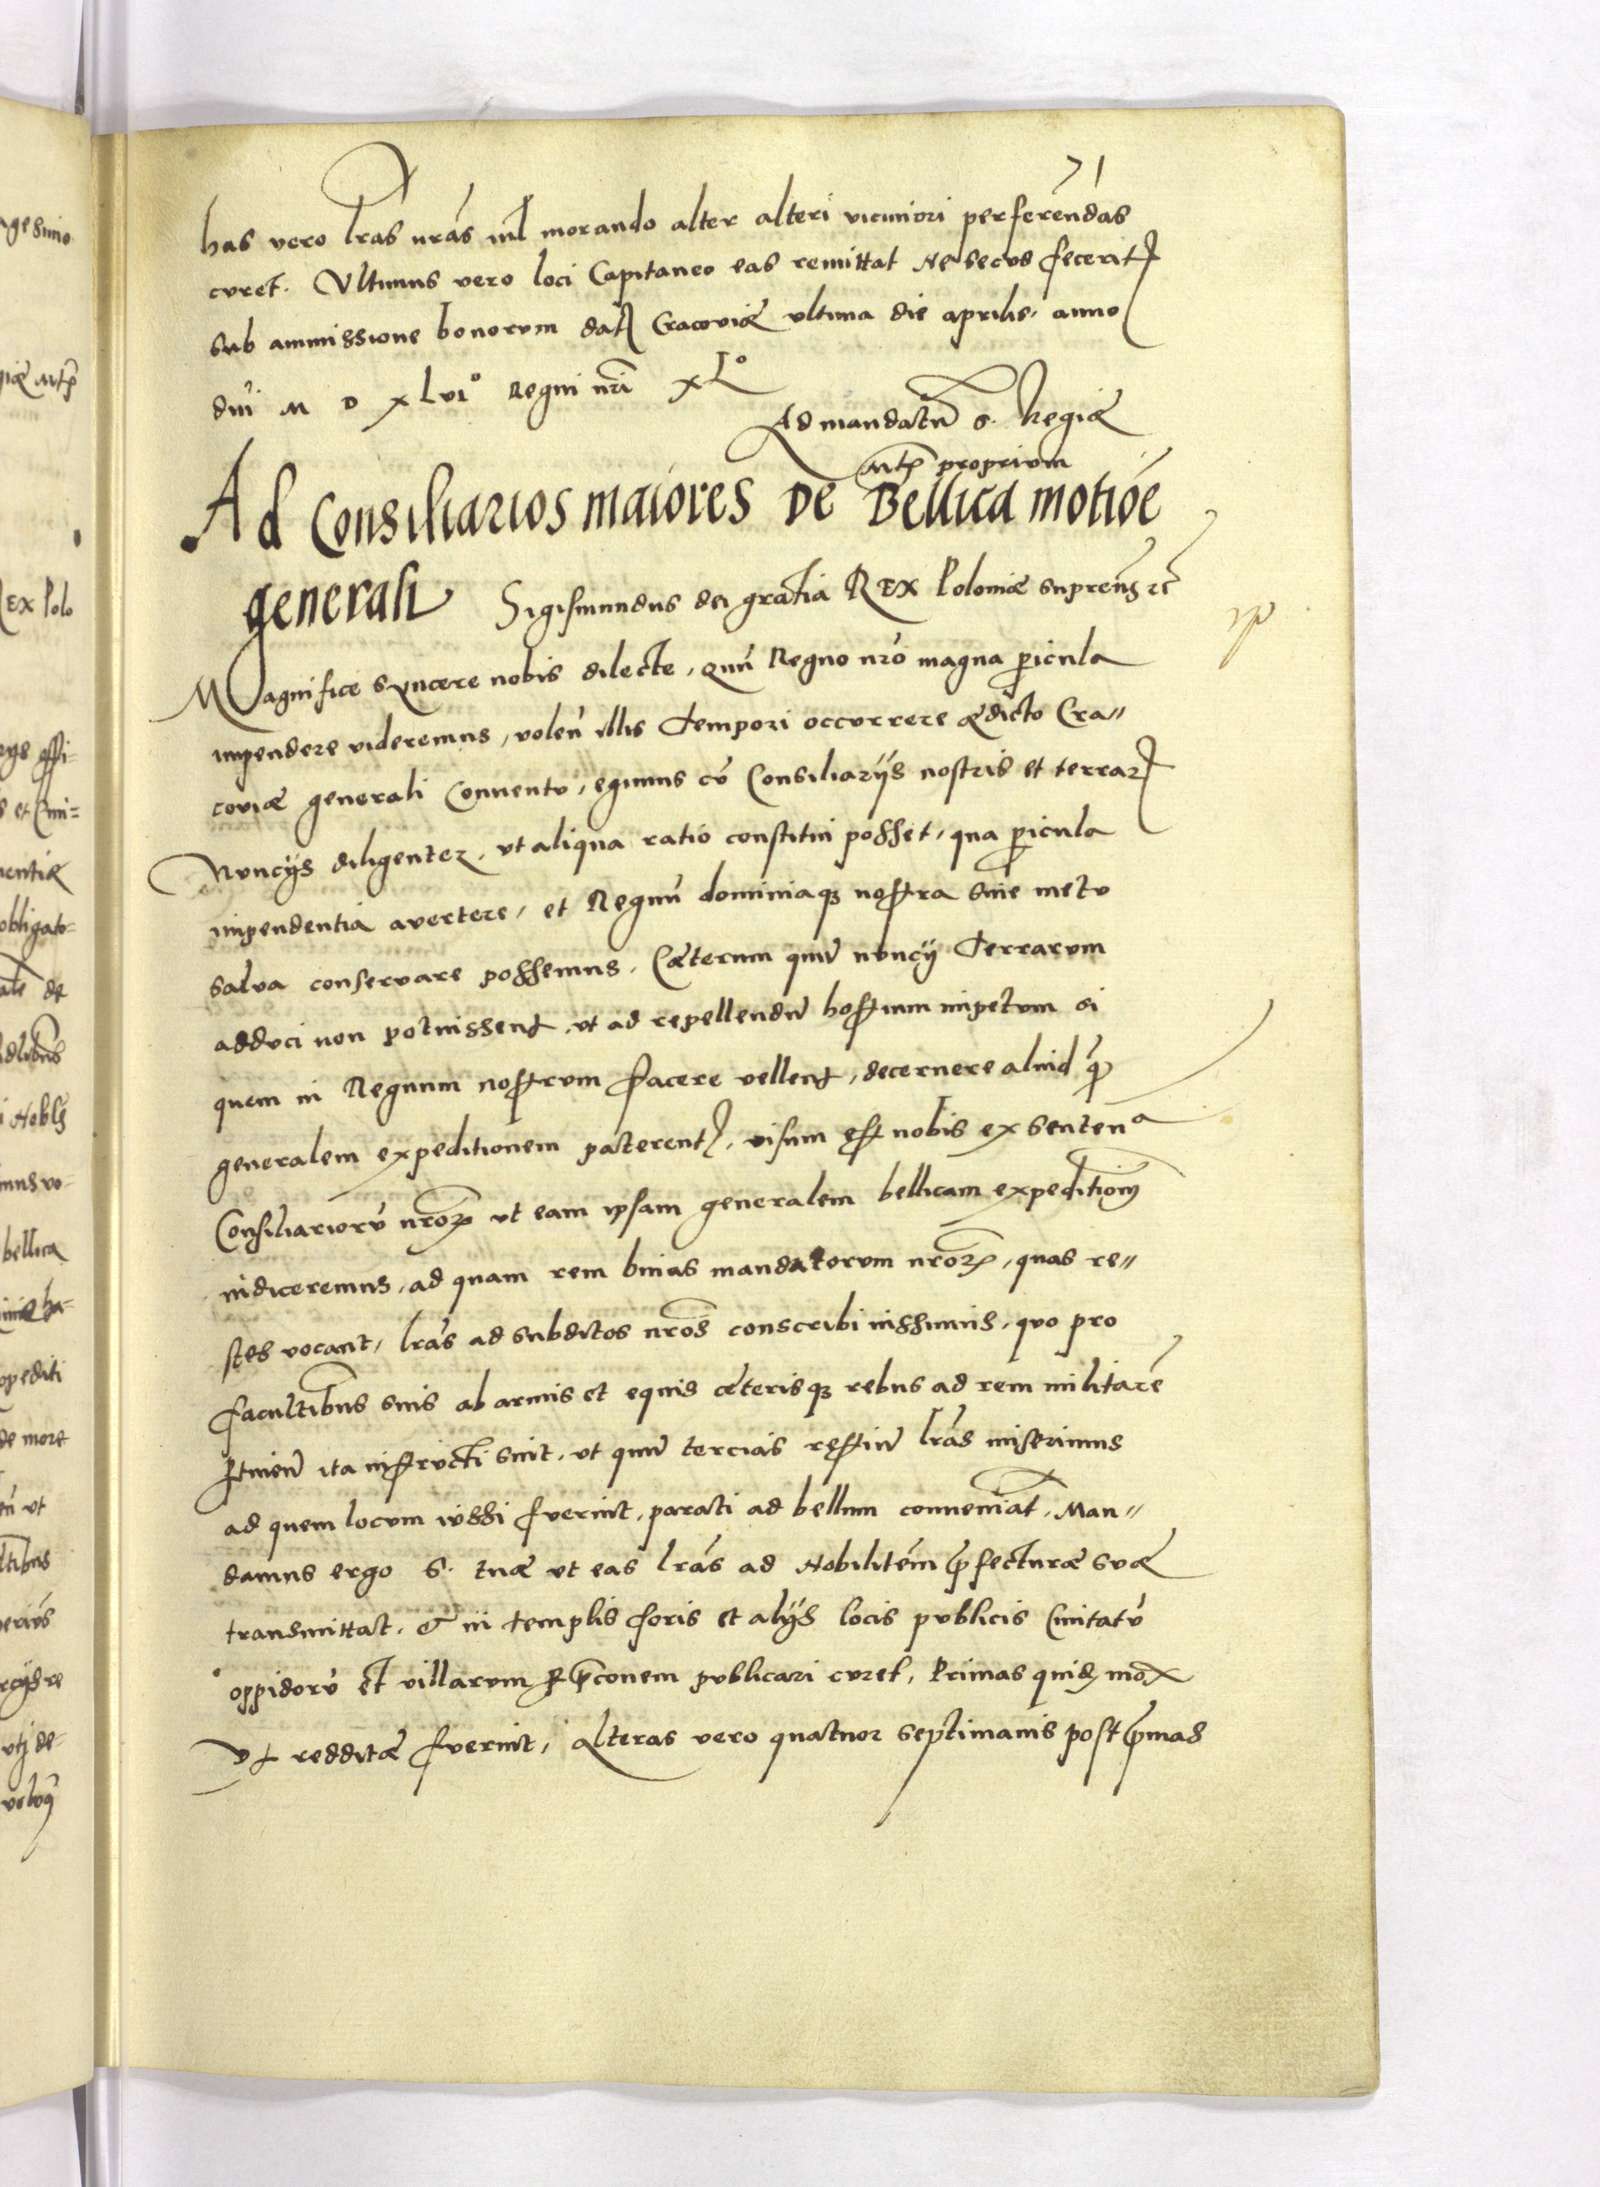 71
has vero lras nras nil morando alter alteri viciniori perferendas
curet. Ultimus vero loci Capitaneo eas remittat Ne secus fecerit
sub ammissione bonorum dat Cracoviæ ultima die aprilis, anno
dni M D XLVI° Regni nri XL°
Ad mandatū S. Regiæ
Mtis proprium
Ad Consiliarios maiores De Bellica motiōe
generali Sigismundus dei gratia REX Poloniæ supremꝰ &c
Magnifice syncere nobis dilecte, Quū Regno nrō magna pericula
impendere videremus, volen̄ illis tempori occurrere ædicto Cra=
coviæ generali Conventu, egimus cū Consiliarijs nostris et terrar
Nuncijs diligenter, ut aliqua ratio constitui posset, qua pericula
impendentia avertere, et Regnū dominiaq3 nostra sine metu
salva conservare possemus. Cæterum quū nuncij Terrarum
adduci non potuissent, ut ad repellendū hostium impetum si
quem in Regnum nostrum facere vellent, decernere aliud q̄
generalem expeditionem paterent, visum est nobis ex senten^a
Consiliariorū nrōr ut eam ipsam generalem bellicam expeditionē
indiceremus, ad quam rem binas mandatorum nrōr, quas re=
stes vocant, lrās ad subditos nrōs conscribi iussimus, quo pro
facultibus suis ab armis et equis cæterisq3 rebus ad rem militarē
ptinen̄ ita instructi sint, ut quū tercias restiū lrās miserimus
ad quem locum iussi fuerint, parati ad bellum conveniāt, Man=
damus ergo S. tuæ ut eas lrās ad Nobilitēm p̄fecturæ suæ
transmittat, & in templis foris et alijs locis publicis Civitatū
oppidorū et villarum p p̄conem publicari curet, Primas quid mox
ut redditæ fuerint, alteras vero quatuor septimanis post p̄mas